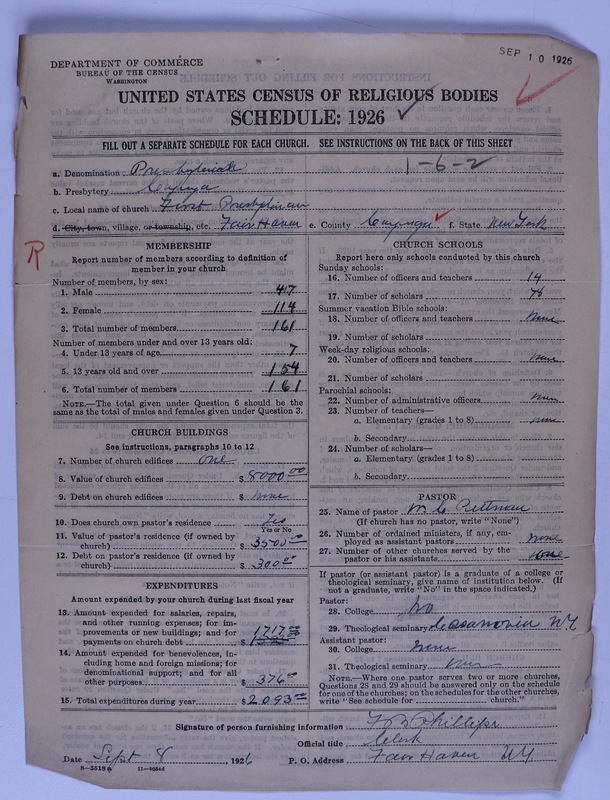 SEP 10 1926
DEPARTMENT OF COMMERCE
BUREAU OF THE CENSUS
WASHINGTON
UNITED STATES CENSUS OF RELIGIOUS BODIES
SCHEDULE: 1926
FILL OUT A SEPARATE SCHEDULE FOR EACH CHURCH. SEE INSTRUCTIONS ON THE BACK OF THIS SHEET
1-6-2
a. Denomination Presbyterian
b. Presbytery Cayuga
c. Local name of church First Presbyterian
d. City, town, village, or township, etc. Fair Haven e. County Cayuga f. State New York
R
MEMBERSHIP
Report number of members according to definition of
member in your church
Number of members, by sex:
1. Male 47
2. Female 114
3. Total number of members 161
Number of members under and over 13 years old:
4. Under 13 years of age 7
5. 13 years old and over 154
6. Total number of members 161
NOTE.—The total given under Question 6 should be
same as the total of males and females given under Question 3.
CHURCH BUILDINGS
See instructions, paragraphs 10 to 12
7. Number of church edifices one
8. Value of church edifices $ 8000 00
9. Debt on church edifices $ None
10. Does church own pastor's residence Yes
Yes or No
11. Value of pastor's residence (if owned by
church) $ 3500 00
12. Debt on pastor's residence (if owned by
church) $ 300 00
EXPENDITURES
Amount expended by your church during last fiscal year
13. Amount expended for salaries, repairs,
and other running expenses; for im-
provements or new buildings; and for
payments on church debt $ 1717
14. Amount expended for benevolences, in-
cluding home and foreign missions; for
denominational support; and for all
other purposes $ 376 00
15. Total expenditures during year $ 2093 00
CHURCH SCHOOLS
Report here only schools conducted by this church
Sunday schools:
16. Number of officers and teachers 14
17. Number of scholars 78
Summer vacation Bible schools:
18. Number of officers and teachers None
19. Number of scholars
Week-day religious schools:
20. Number of officers and teachers None
21. Number of scholars
Parochial schools:
22. Number of administrative officers None
23. Number of teachers—
a. Elementary (grades 1 to 8) None
b. Secondary
24. Number of scholars—
a. Elementary (grades 1 to 8)
b. Secondary
PASTOR
25. Name of pastor
(If church has no pastor, write "None")
26. Number of ordained ministers, if any, em-
ployed as assistant pastors None
27. Number of other churches served by the
pastor or his assistants
If pastor (or assistant pastor) is a graduate of a college or
theological seminary, give name of institution below. (If
not a graduate, write "No" in the space indicated.)
Pastor:
28. College No
29. Theological seminary NY
Assistant pastor:
30. College None
31. Theological seminary None
NOTE.—Where one pastor serves two or more churches,
Questions 28 and 29 should be answered only on the schedule
for one of the churches; on the schedules for the other churches,
write "See schedule for church."
Signature of person furnishing information Phillips
Official title Clerk
Date Sept 8, 1926 P. O. Address Fair Haven NY
8-5518